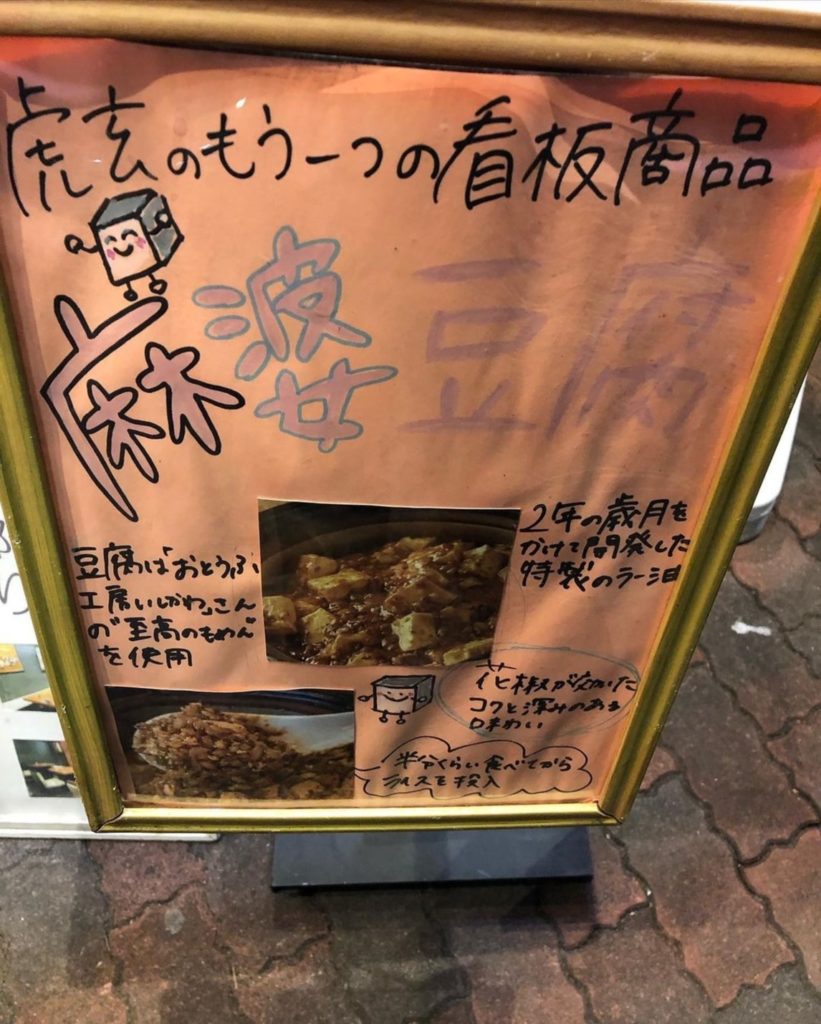 虎玄のもう一つの看板商品
麻婆豆腐
2年の歳月を
かけて開発した
特製のラー油
豆腐は「おとうふ
工房いしかわ」さん
の"至高のもめん"
を使用
花椒が効いた
コクと深みのある
味わい
半分くらい食べてから
ライスを投入